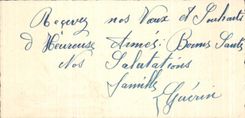 Recevez nos Vœux et Souhaits
d'Heureuse Année. Bonne Santé
Nos Salutations
Famille
Guérin